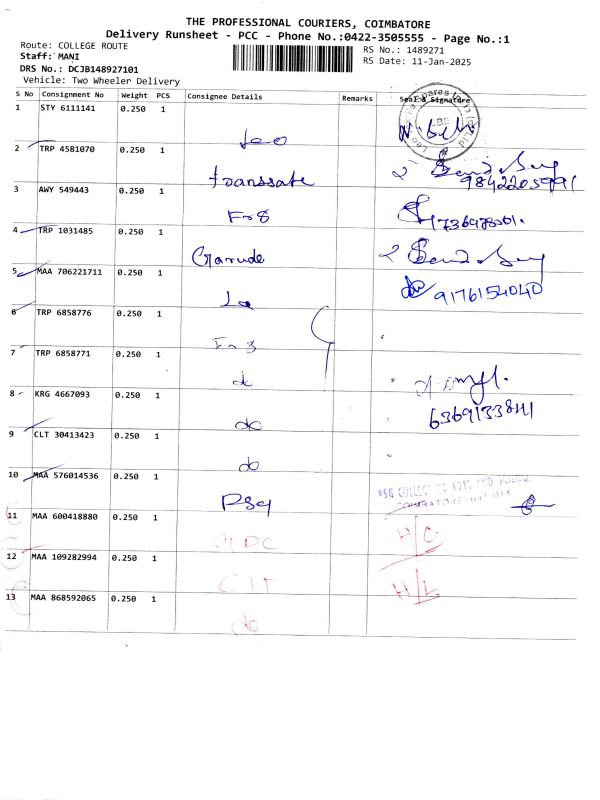 THE PROFESSIONAL COURIERS, COIMBATORE
Delivery Runsheet - PCC - Phone No.:0422-3505555 - Page No.:1
Route: COLLEGE ROUTE
Staff: MANI
DRS No.: DCJB148927101
Vehicle: Two Wheeler Delivery
RS No.: 1489271
RS Date: 11-Jan-2025
S No Consignment No Weight PCS Consignee Details Remarks Seal & Signature
1 STY 6111141 0.250 1
Leo
2 TRP 4581070 0.250 1
9842205991
3 AWY 549443 0.250 1
4 TRP 1031485 0.250 1
5 MAA 706221711 0.250 1
9176154040
6 TRP 6858776 0.250 1
7 TRP 6858771 0.250 1
do
8 KRG 4667093 0.250 1
do
9 CLT 30413423 0.250 1
do
10 MAA 576014536 0.250 1
PSG
PSG COLLEGE OF ARTS AND SCIENCE
11 MAA 600418880 0.250 1
H/C
12 MAA 109282994 0.250 1
CIT
H/L
13 MAA 868592065 0.250 1
do